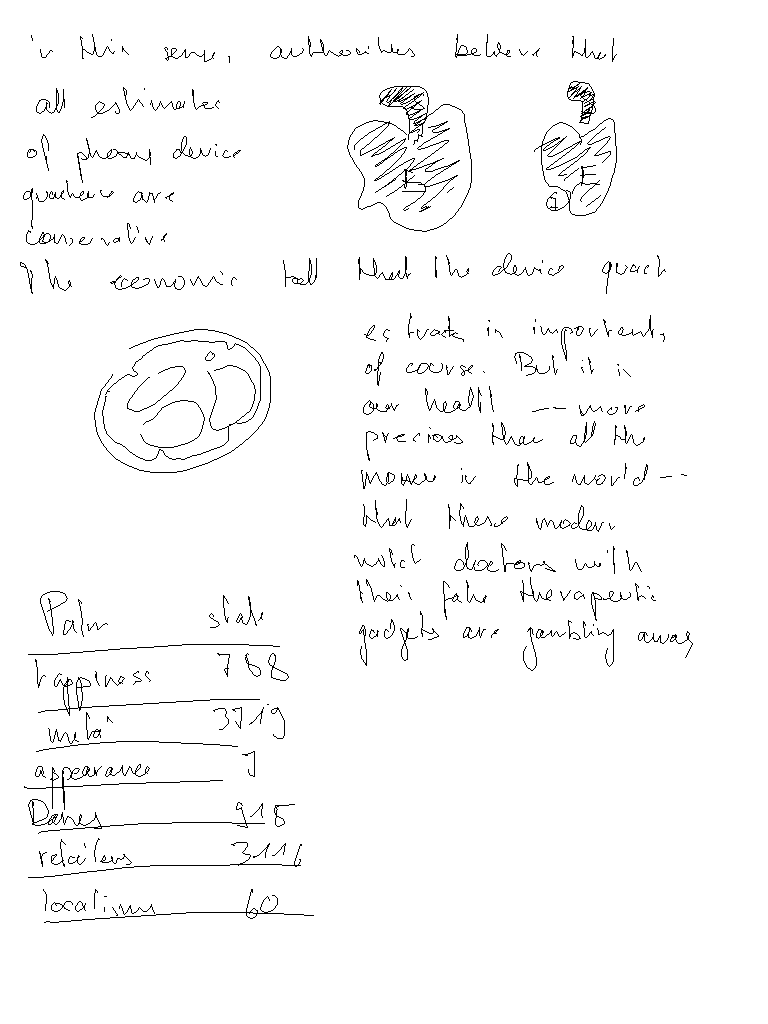 in this sense, authorities believe that
all estimates
of phony device
quackere are
conservative
The economic toll that the device quack
extracts is important,
of course. But it is
our health -- more
precious than all the
money in the world --
that these modern
witch doctors with
their fake therapeutic
gadgets are gambling away
L
E
G
Palm state
happiness 788
metal 3719
appearance 7
Danes 915
retailers 3116
locations 60